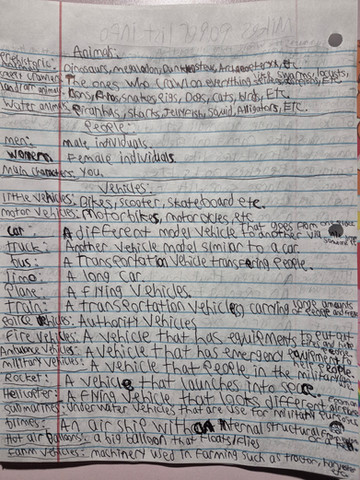 Animals:
Prehistoric animals: Dinosaurs, megalodon, Dunkleosteus, Archaeopteryx, etc
The ones who crawl on everything like swarms, locusts,
Land/air animals: Lions, Apes, snakes, Pigs, Dogs, cats, Bird, Etc.
Water animals: Piranhas, Sharks, Jellyfish, Squid, Alligators, Etc.
People:
men: male individuals.
women: Female individuals.
Main characters: you.
Vehicles:
little vehicles: Bikes, scooter, skateboard etc.
motor vehicles: motorbikes, motorcycles, etc
car: A different model vehicle that goes from one place to another via
truck: Another vehicle model similar to a car.
bus: A transportation vehicle transfering people.
limo: A long car.
Plane: A flying vehicles.
train: A transportation vehicles carrying large amounts of people and
Police vehicles: Authority vehicles
Fire vehicles: A vehicle that has equipments to put out
Ambulance vehicles: A vehicle that has emergency equipments to help people
military vehicles: A vehicle that people in the military
Rocket: A vehicle that launches into space.
Helicopter: A flying vehicle that lacks different
submarines: underwater vehicles that are use for military purpose
blimps: An air ship with an internal structural
Hot air balloons: a big balloon that floats/flies
farm vehicles: machinery used in farming such as tractor, harvester etc